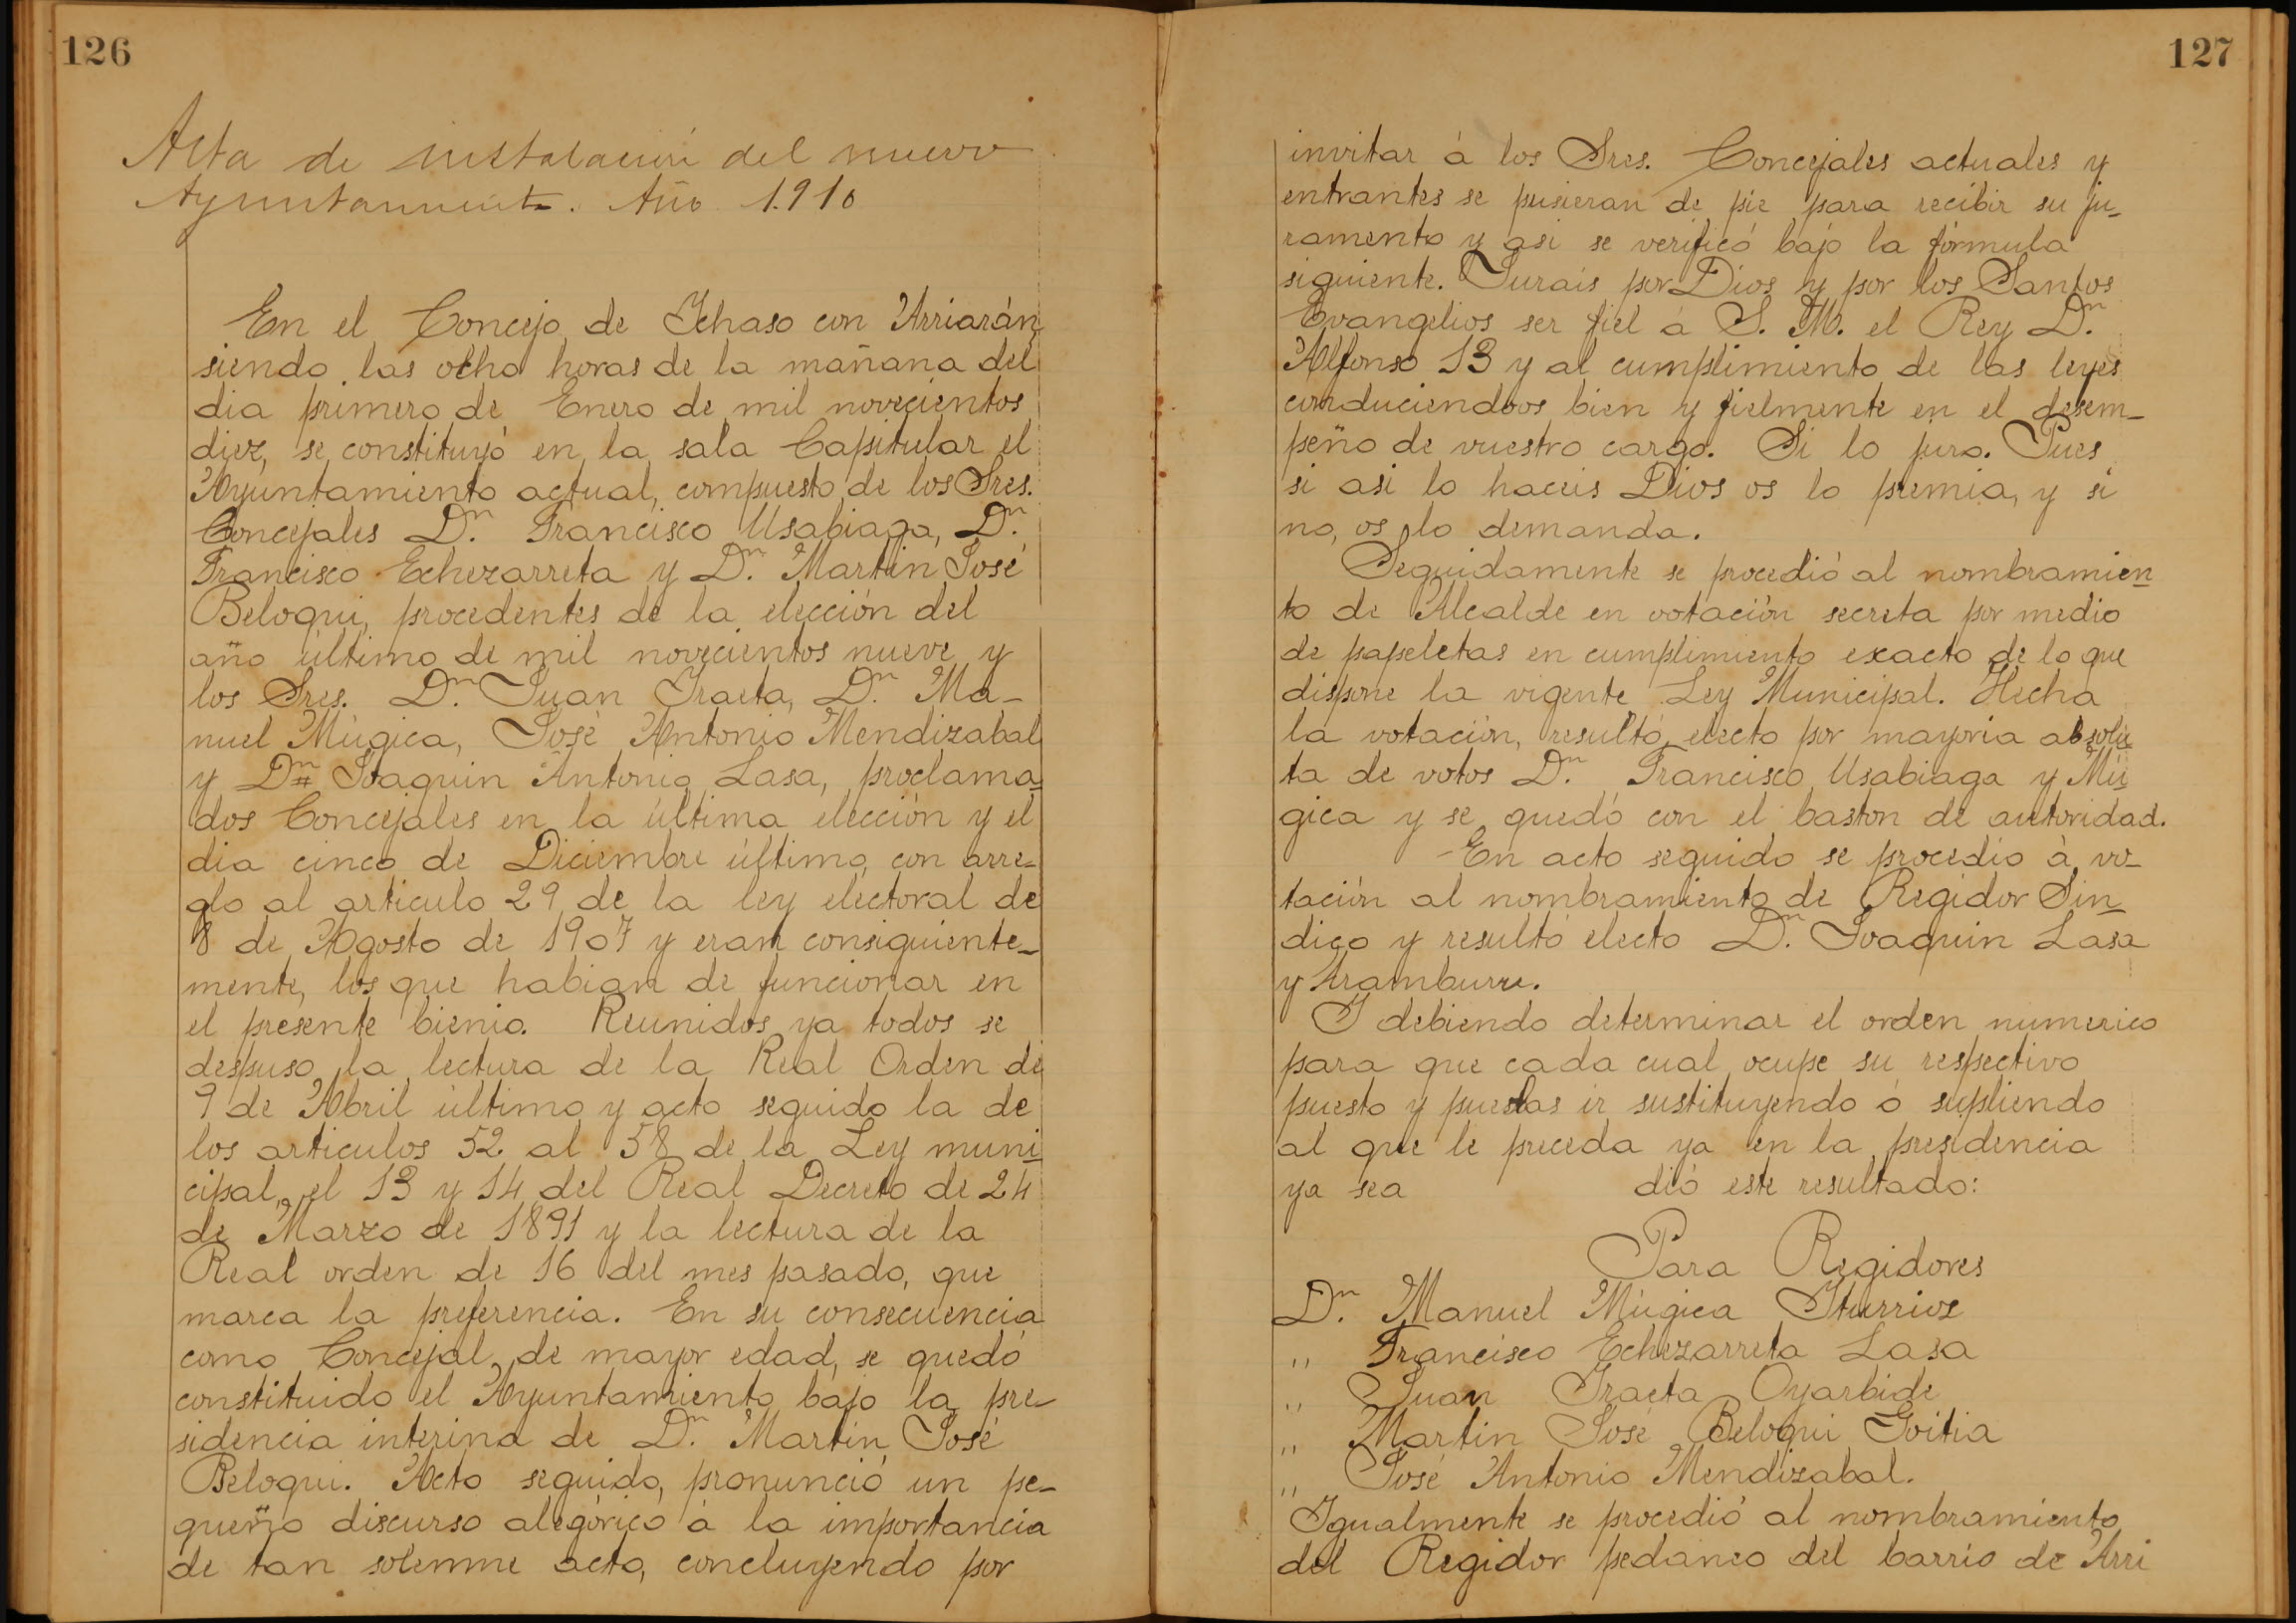 126
Acta de instalación del nuevo
Ayuntamiento. Año 1.910
En el Concejo de Ichaso con Arriarán
siendo las ocho horas de la mañana del
dia primero de Enero de mil novecientos
diez, se constituyó en la sala Capitular el
Ayuntamiento actual, compuesto de los Sres.
Concejales Dn. Francisco Usabiaga, Dn.
Francisco Echezarreta y Dn. Martin José
Beloqui, procedentes de la elección del
año último de mil novecientos nueve y
los Sres. Dn. Juan Iraeta, Dn. Ma-
nuel Múgica, José Antonio Mendizabal
y Dn. Joaquin Antonio Lasa, proclama-
dos Concejales en la última elección y el
dia cinco de Diciembre último, con arre-
glo al articulo 29 de la ley electoral de
8 de Agosto de 1907 y eran consiguiente-
mente, los que habian de funcionar en
el presente bienio. Reunidos ya todos se
despuso la lectura de la Real Orden de
9 de Abril último y acto seguido la de
los articulos 52 al 58 de la Ley muni-
cipal, el 13 y 14 del Real Decreto de 24
de Marzo de 1891 y la lectura de la
Real orden de 16 del mes pasado, que
marca la preferencia. En su consecuencia
como Concejal de mayor edad, se quedó
constituido el Ayuntamiento bajo la pre-
sidencia interina de Dn. Martin José
Beloqui. Acto seguido, pronunció un pe-
queño discurso alegórico á la importancia
de tan solemne acto, concluyendo por
127
invitar á los Sres. Concejales actuales y
entrantes se pusieran de pie para recibir su ju-
ramento y asi se verificó bajo la fórmula
siguiente. Jurais por Dios y por los Santos
Evangelios ser fiel á S. M. el Rey Dn.
Alfonso 13 y al cumplimiento de las leyes
conduciendoos bien y fielmente en el desem-
peño de vuestro cargo. Si lo juro. Pues
si asi lo haceis Dios os lo premia, y si
no, os lo demanda.
Seguidamente se procedió al nombramien-
to de Alcalde en votación secreta por medio
de papeletas en cumplimiento exacto de lo que
dispone la vigente Ley Municipal. Hecha
la votación, resultó electo por mayoria absolu-
ta de votos Dn. Francisco Usabiaga y Mú-
gica y se quedó con el baston de autoridad.
En acto seguido se procedió á vo-
tación al nombramiento de Regidor Sin-
dico y resultó electo Dn. Joaquin Lasa
y Aramburu.
Y debiendo determinar el orden numerico
para que cada cual ocupe su respectivo
puesto y puestas ir sustituyendo ó supliendo
al que le preceda ya en la presidencia
ya sea dió este resultado:
Para Regidores
Dn. Manuel Múgica Iturrioz
,, Francisco Echezarreta Lasa
,, Juan Iraeta Oyarbide
,, Martin José Beloqui Goitia
,, José Antonio Mendizabal.
Igualmente se procedió al nombramiento
del Regidor pedaneo del barrio de Arri